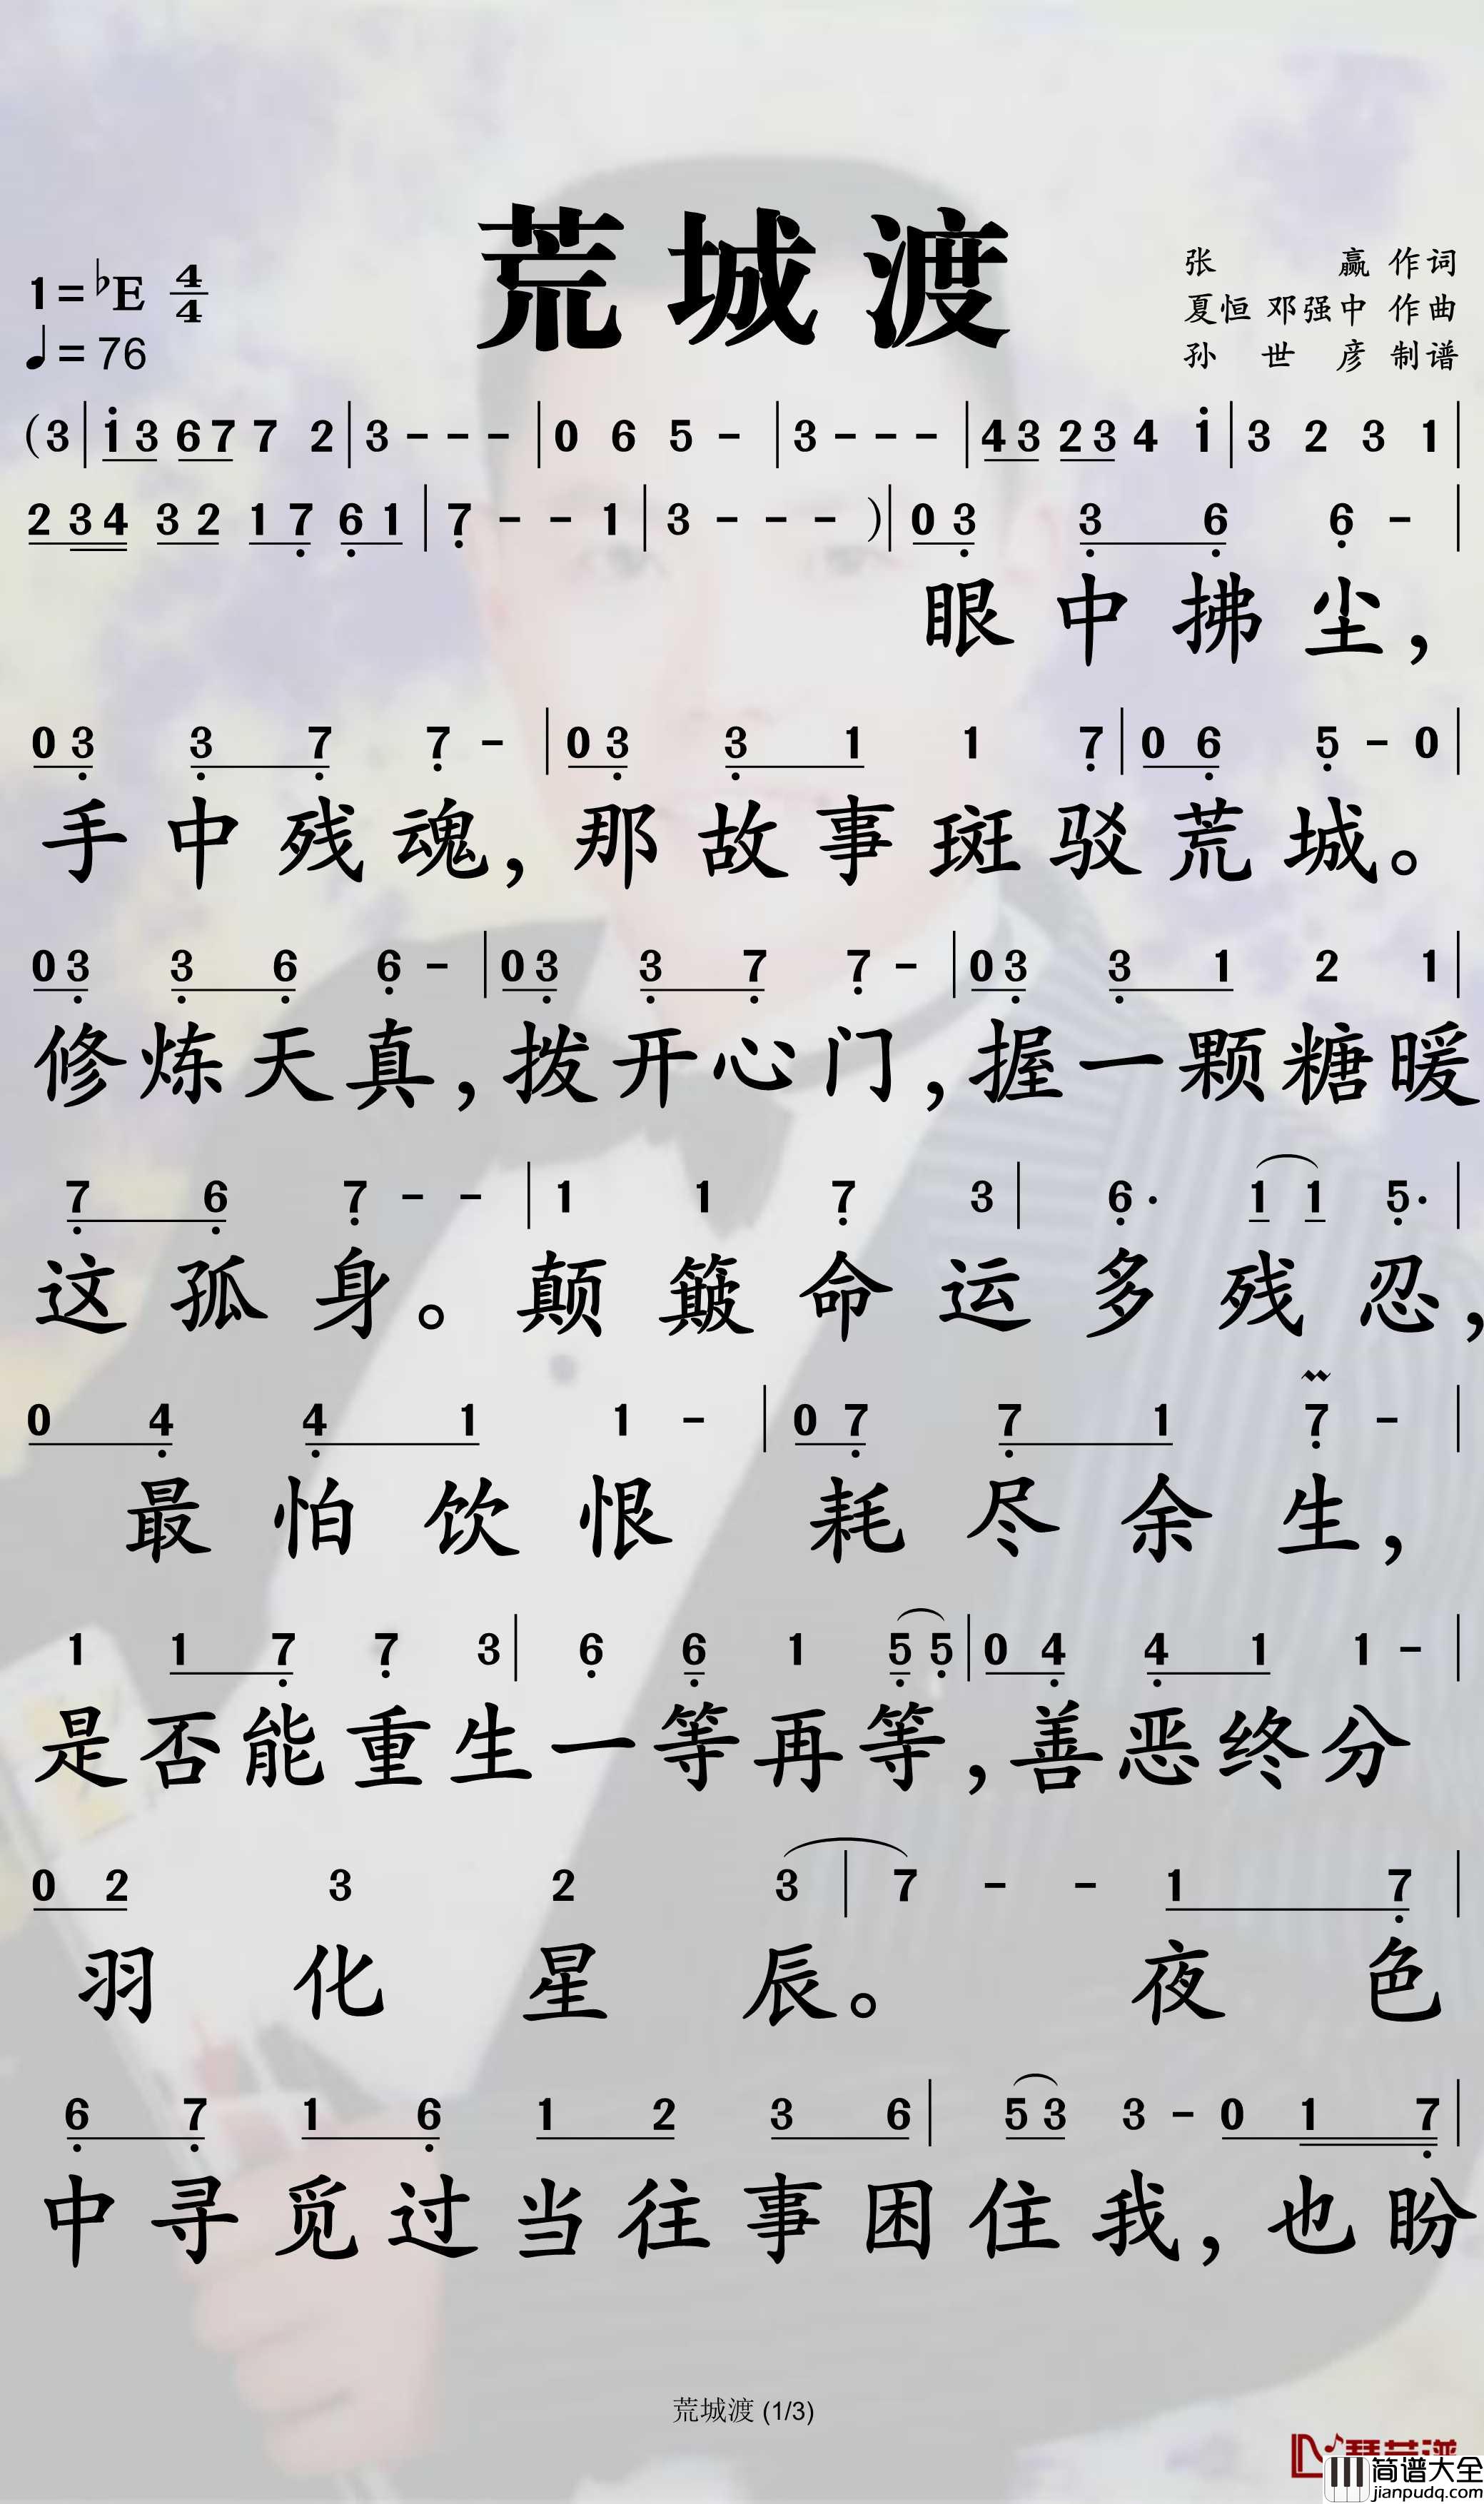 荒城渡
1=♭E 4/4
♩=76
张 赢 作词
夏恒 邓强中 作曲
孙世彦 制谱
(3|i3 67 7 2|3 - - -|0 6 5 -|3 - - -|43 23 4 i|3 2 3 1|
2 34 32 17 61|7 - - 1|3 - - -)|03 3 6 6 -|
眼中拂尘，
03 3 7 7 -|03 3 1 1 7|0 6 5 - 0|
手中残魂，那故事斑驳荒城。
03 3 6 6 -|03 3 7 7 -|03 3 1 2 1|
修炼天真，拨开心门，握一颗糖暖
7 6 7 - -|1 1 7 3|6· 1 1 5·|
这孤身。颠簸命运多残忍，
0 4 4 1 1 -|0 7 7 1 7 -|
最怕饮恨耗尽余生，
1 1 7 7 3|6 6 1 5 5|0 4 4 1 1 -|
是否能重生一等再等，善恶终分
0 2 3 2 3|7 - - 1 7|
羽化星辰。夜色
6 7 1 6 1 2 3 6|5 3 3 - 0 1 7|
中寻觅过当往事困住我，也盼
荒城渡 (1/3)
简谱大全
jianpudq.com